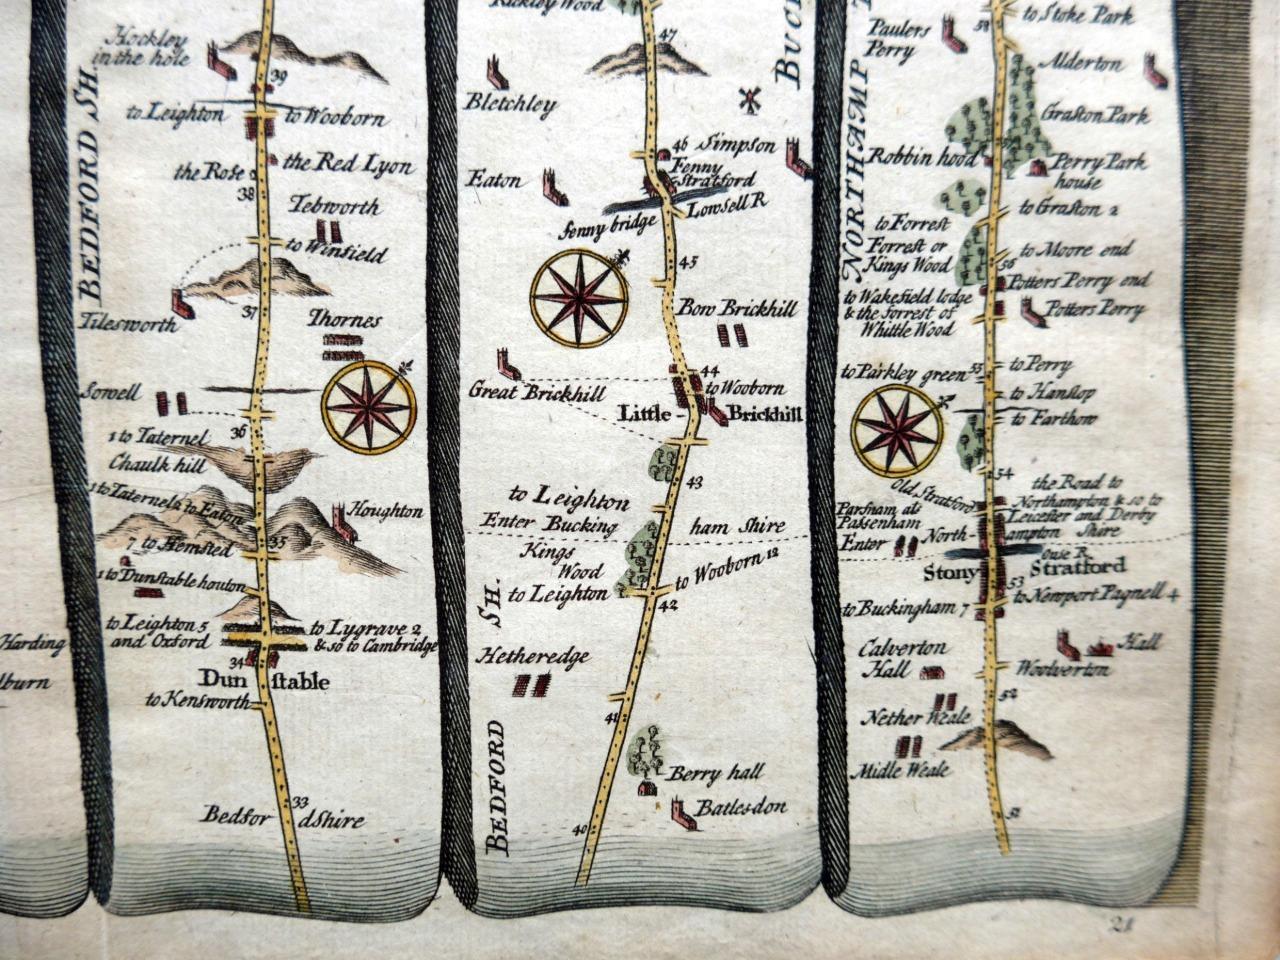 Harding
lburn
BEDFORD SH.
Hockley
in the hole
39
to Leighton
to Wooborn
the Rose
the Red Lyon
38
Tebworth
to Winsield
Tilesworth
37
Thornes
Sowell
36
1 to Taternel
Chaulk hill
1 to Taternel
2 to Eaton
Houghton
35
7 to Hemsted
1 to Dunstable houton
to Leighton 5
and Oxford
to Lygrave 2
& so to Cambridge
34
Dun stable
to Kensworth
33
Bedfor dshire
Rickley Wood
47
Bletchley
46 Simpson
Fenny
Stratford
Eaton
Lowsell R
fenny bridge
45
Bow Brickhill
44
Great Brickhill
to Wooborn
Little - Brickhill
43
to Leighton
Enter Bucking ham shire
Kings
Wood
to Leighton
to Wooborn 12
42
BEDFORD SH.
Hetheredge
41
Berry hall
Batlesdon
40
NORTHAMP
Paulers
Perry
58
to Stoke Park
Alderton
Grafton Park
Robbin hood
57
Perry Park
house
to Grafton 2
to Forrest
Forrest or
Kings Wood
to Moore end
56
Potters Perry end
to Wakefield lodge
& the forrest of
Whittle Wood
Potters Perry
to Parkley green
55
to Perry
to Hanslop
to Farthow
54
Old Stratford
the Road to
Northampton & so to
Leicester and Derby
Shire
Parsham als
Passenham
Enter North ampton
Ouse R.
Stony Stratford
53
to Newport Pagnell 4
to Buckingham 7
Calverton
Hall
Hall
Woolverton
52
Nether Weale
Midle Weale
51
21